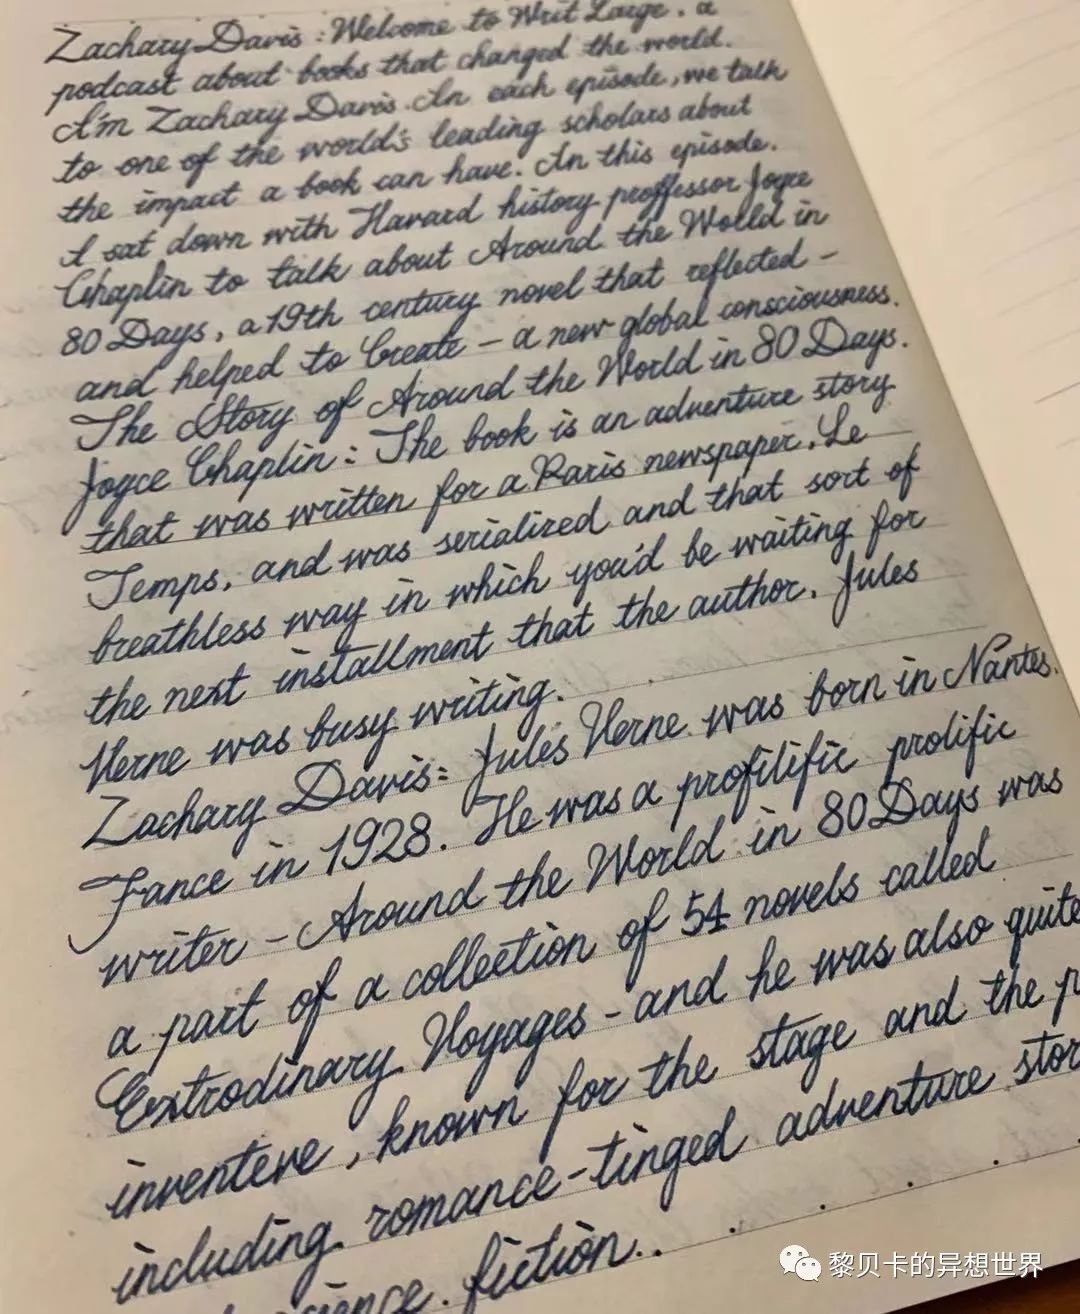 Zachary Davis: Welcome to Writ Large. a
podcast about books that changed the world.
I'm Zachary Davis. In each episode, we talk
to one of the world's leading scholars about
the impact a book can have. In this episode.
I sat down with Havard history proffessor Joyce
Chaplin to talk about Around the World in
80 Days, a 19th century novel that reflected –
and helped to Create – a new global consciousness.
The Story of Around the World in 80 Days.
Joyce Chaplin: The book is an adventure story
that was written for a Paris newspaper. Le
Temps, and was serialized and that sort of
breathless way in which you'd be waiting for
the next installment that the author. Jules
Verne was busy writing.
Zachary Davis: Jules Verne was born in Nantes.
France in 1928. He was a profilific prolific
writer – Around the World in 80 Days was
a part of a collection of 54 novels called
Extrodinary Voyages – and he was also quite
inventeve, known for the stage and the
including romance-tinged adventure
fiction..
黎贝卡的异想世界